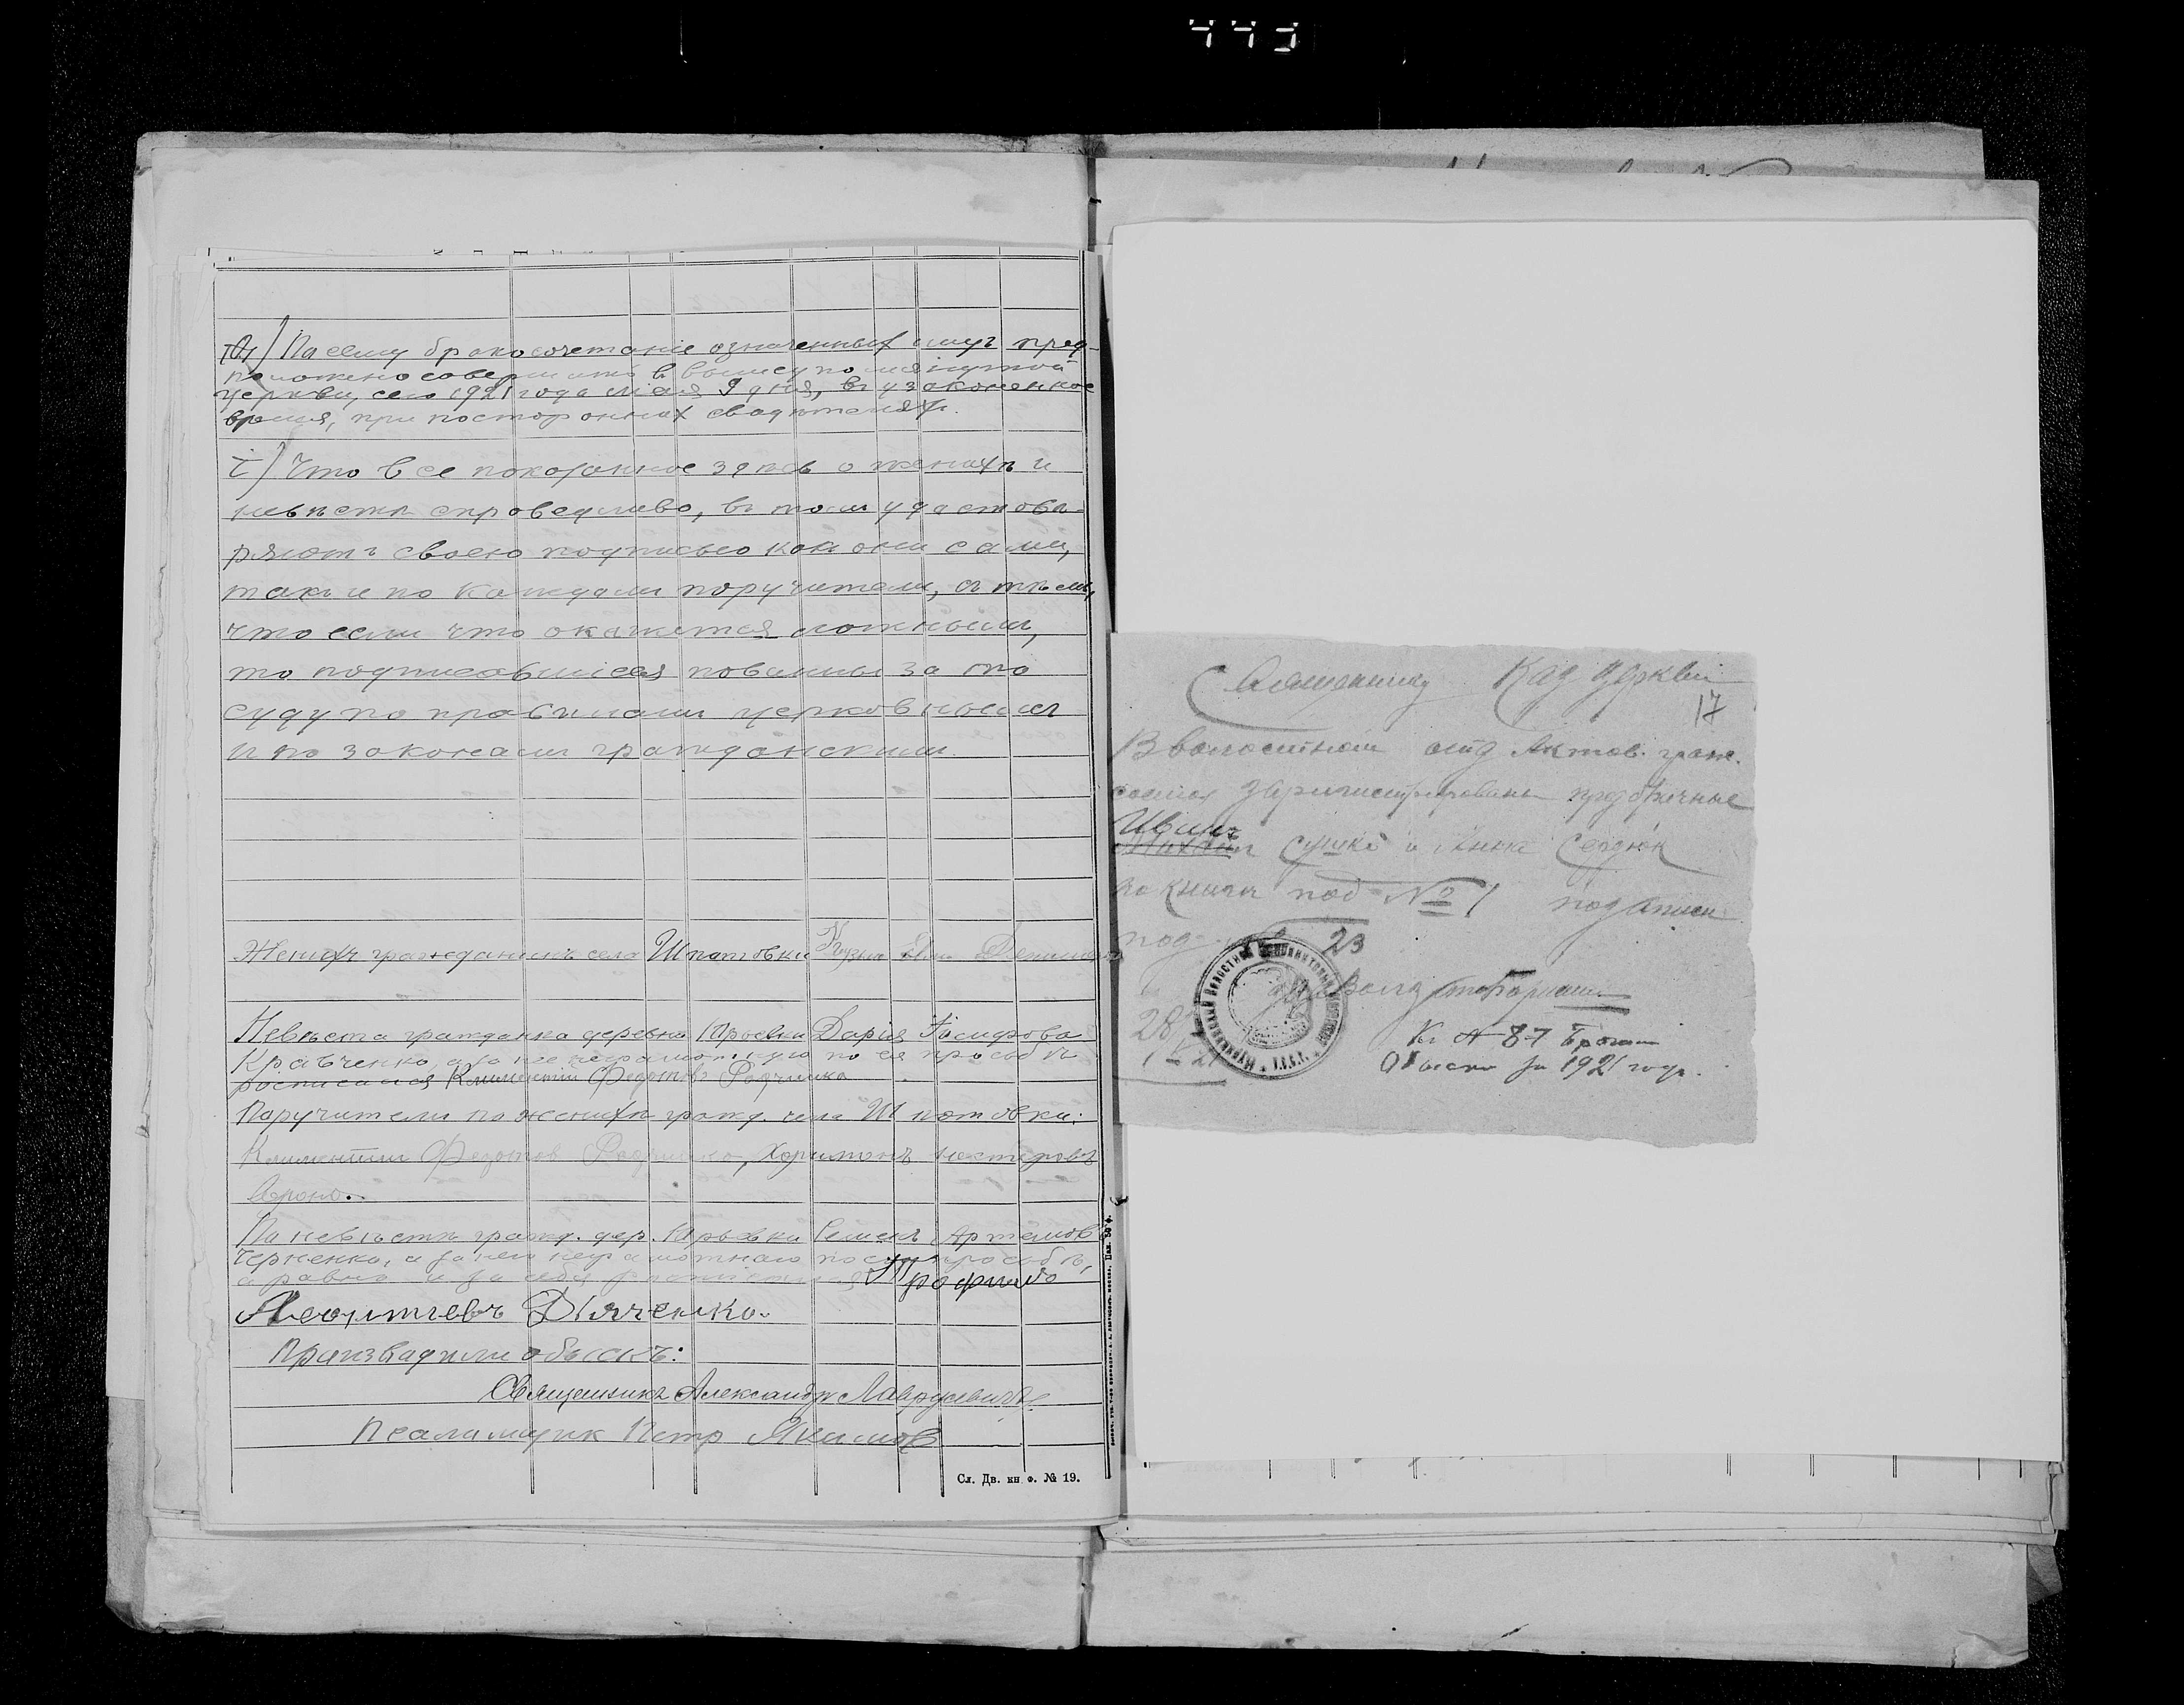 По сему бракосочетание означенных лицъ пред-
положено совершить в вышеупомянутой
церкви, сего 1921 года мiая 9 дня, въ узаконенное
время, при посторонних свадѣтеляхъ.
i) Что все показанное здѣсь о женихѣ и
невѣстѣ справедливо, въ том удастове-
ряютъ своею подписью как они сами,
такъ и по каждом поручители, съ тѣмъ,
что если что окажется ложным,
то подписавшiеся повинны за то
суду по правилам церковным
и по законам гражданским.
Женихъ гражданинъ села Шпотовки
Невѣста гражданка деревни Юрьевки Дария
Кравченко, а за нее неграмотную по ея просьбѣ
росписался Климентий Федотовъ Радченко
Поручители по женихѣ гражд. села Шпотовки:
Климентий Федотов Радченко, Харитонъ Нестеровъ
По невѣстѣ гражд. дер. Юрьевки Семенъ Артемов
Черненко, а за него неграмотнаго по его просьбѣ,
а равно и за себя Трофимъ
Леонтiевъ Дiяченко.
Праизвадили обыскъ:
Священникъ Александръ Лаврусевичъ
Псаломщик Петр Якимов
Сл. Дв. кн ф. № 19.
Священнику Каз церкви
17
В волостном отд Актов. граж.
состоя зарегистрированы предбрачные
Иванъ
Сушко и Анна Сердюк
по книги под № 1 под
под 23
28
Кь А 87 Брачн
Обыски за 1921 годъ.